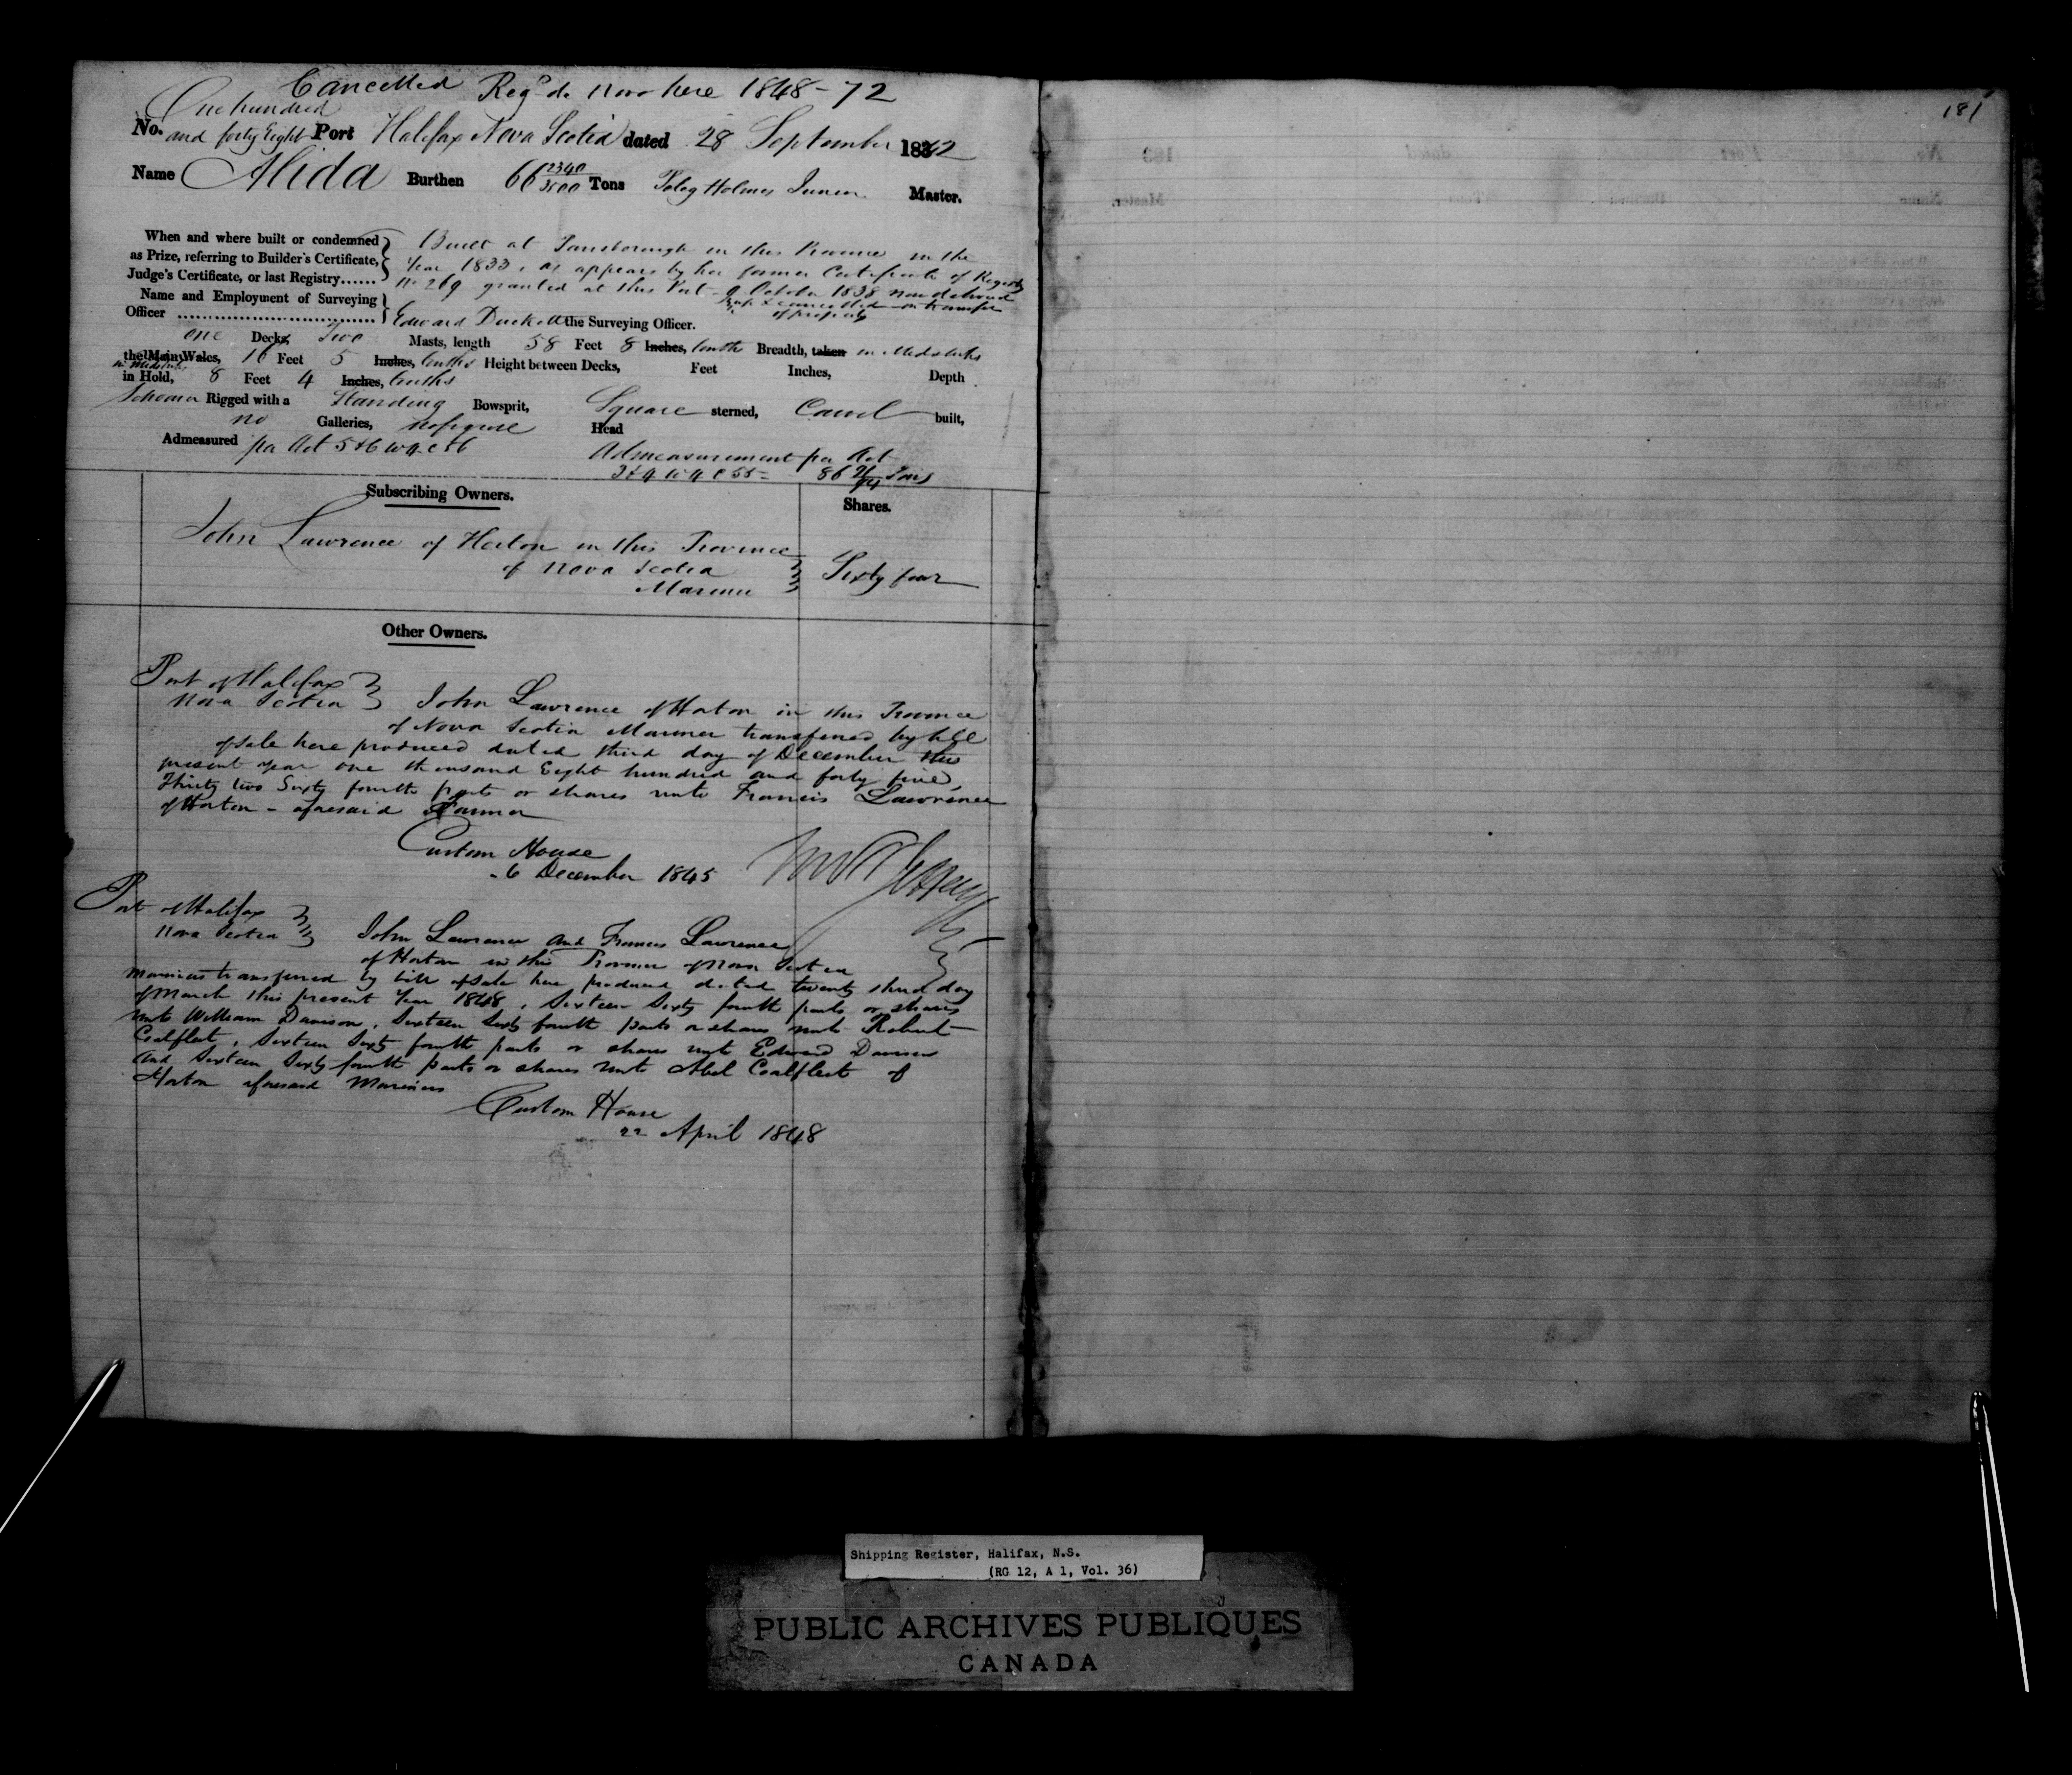 Cancelled Reg^d de novo here 1848 - 72
181
One hundred
No. and forty Eight Port Halifax Nova Scotia dated 28 September 1842
Name Alida Burthen 66 2340/3500 Tons Peleg Holmes Junior Master.
When and where built or condemned
as Prize, referring to Builder's Certificate,
Judge's Certificate, or last Registry......
Built at Parrsborough in this Province in the
Year 1833, as appears by her former Certificate of Registry
No 269 granted at this Port 9 October 1838 now delivered
up & cancelled on transfer
of property
Name and Employment of Surveying
Officer .................................
Edward Duckett the Surveying Officer.
one Decks, Two Masts, length 58 Feet 8 Inches, tenths Breadth, taken in Midships
the Main Wales, 16 Feet 5 Inches, tenths Height between Decks, Feet Inches, Depth
in Midships
in Hold, 8 Feet 4 Inches, tenths
Schooner Rigged with a Standing Bowsprit, Square sterned, Carvel built,
no Galleries, no figure Head
Admeasured per Act 5 & 6 W 4 C 56
Admeasurement per Act
3 & 4 W 4 C 55 = 86 Tons
Subscribing Owners.
Shares.
John Lawrence of Horton in this Province
of Nova Scotia
Mariner
Sixty four
Other Owners.
Port of Halifax
Nova Scotia
John Lawrence of Horton in this Province
of Nova Scotia Mariner transferred by bill
of sale here produced dated third day of December this
present year one thousand Eight hundred and forty five,
Thirty two Sixty fourth parts or shares unto Francis Lawrence
of Horton - aforesaid Farmer
Custom House
6 December 1845
Port of Halifax
Nova Scotia
John Lawrence and Francis Lawrence
of Horton in this Province of Nova Scotia
mariners transferred by bill of sale here produced dated twenty third day
of March this present Year 1848, Sixteen Sixty fourth parts or shares
unto William Davison, Sixteen Sixty fourth parts or shares unto Robert
Coalfleet, Sixteen Sixty fourth parts or shares unto Edward Davison
and Sixteen Sixty fourth parts or shares unto Abel Coalfleet of
Horton aforesaid Mariners
Custom House
22 April 1848
Shipping Register, Halifax, N.S.
(RG 12, A 1, Vol. 36)
PUBLIC ARCHIVES PUBLIQUES
CANADA